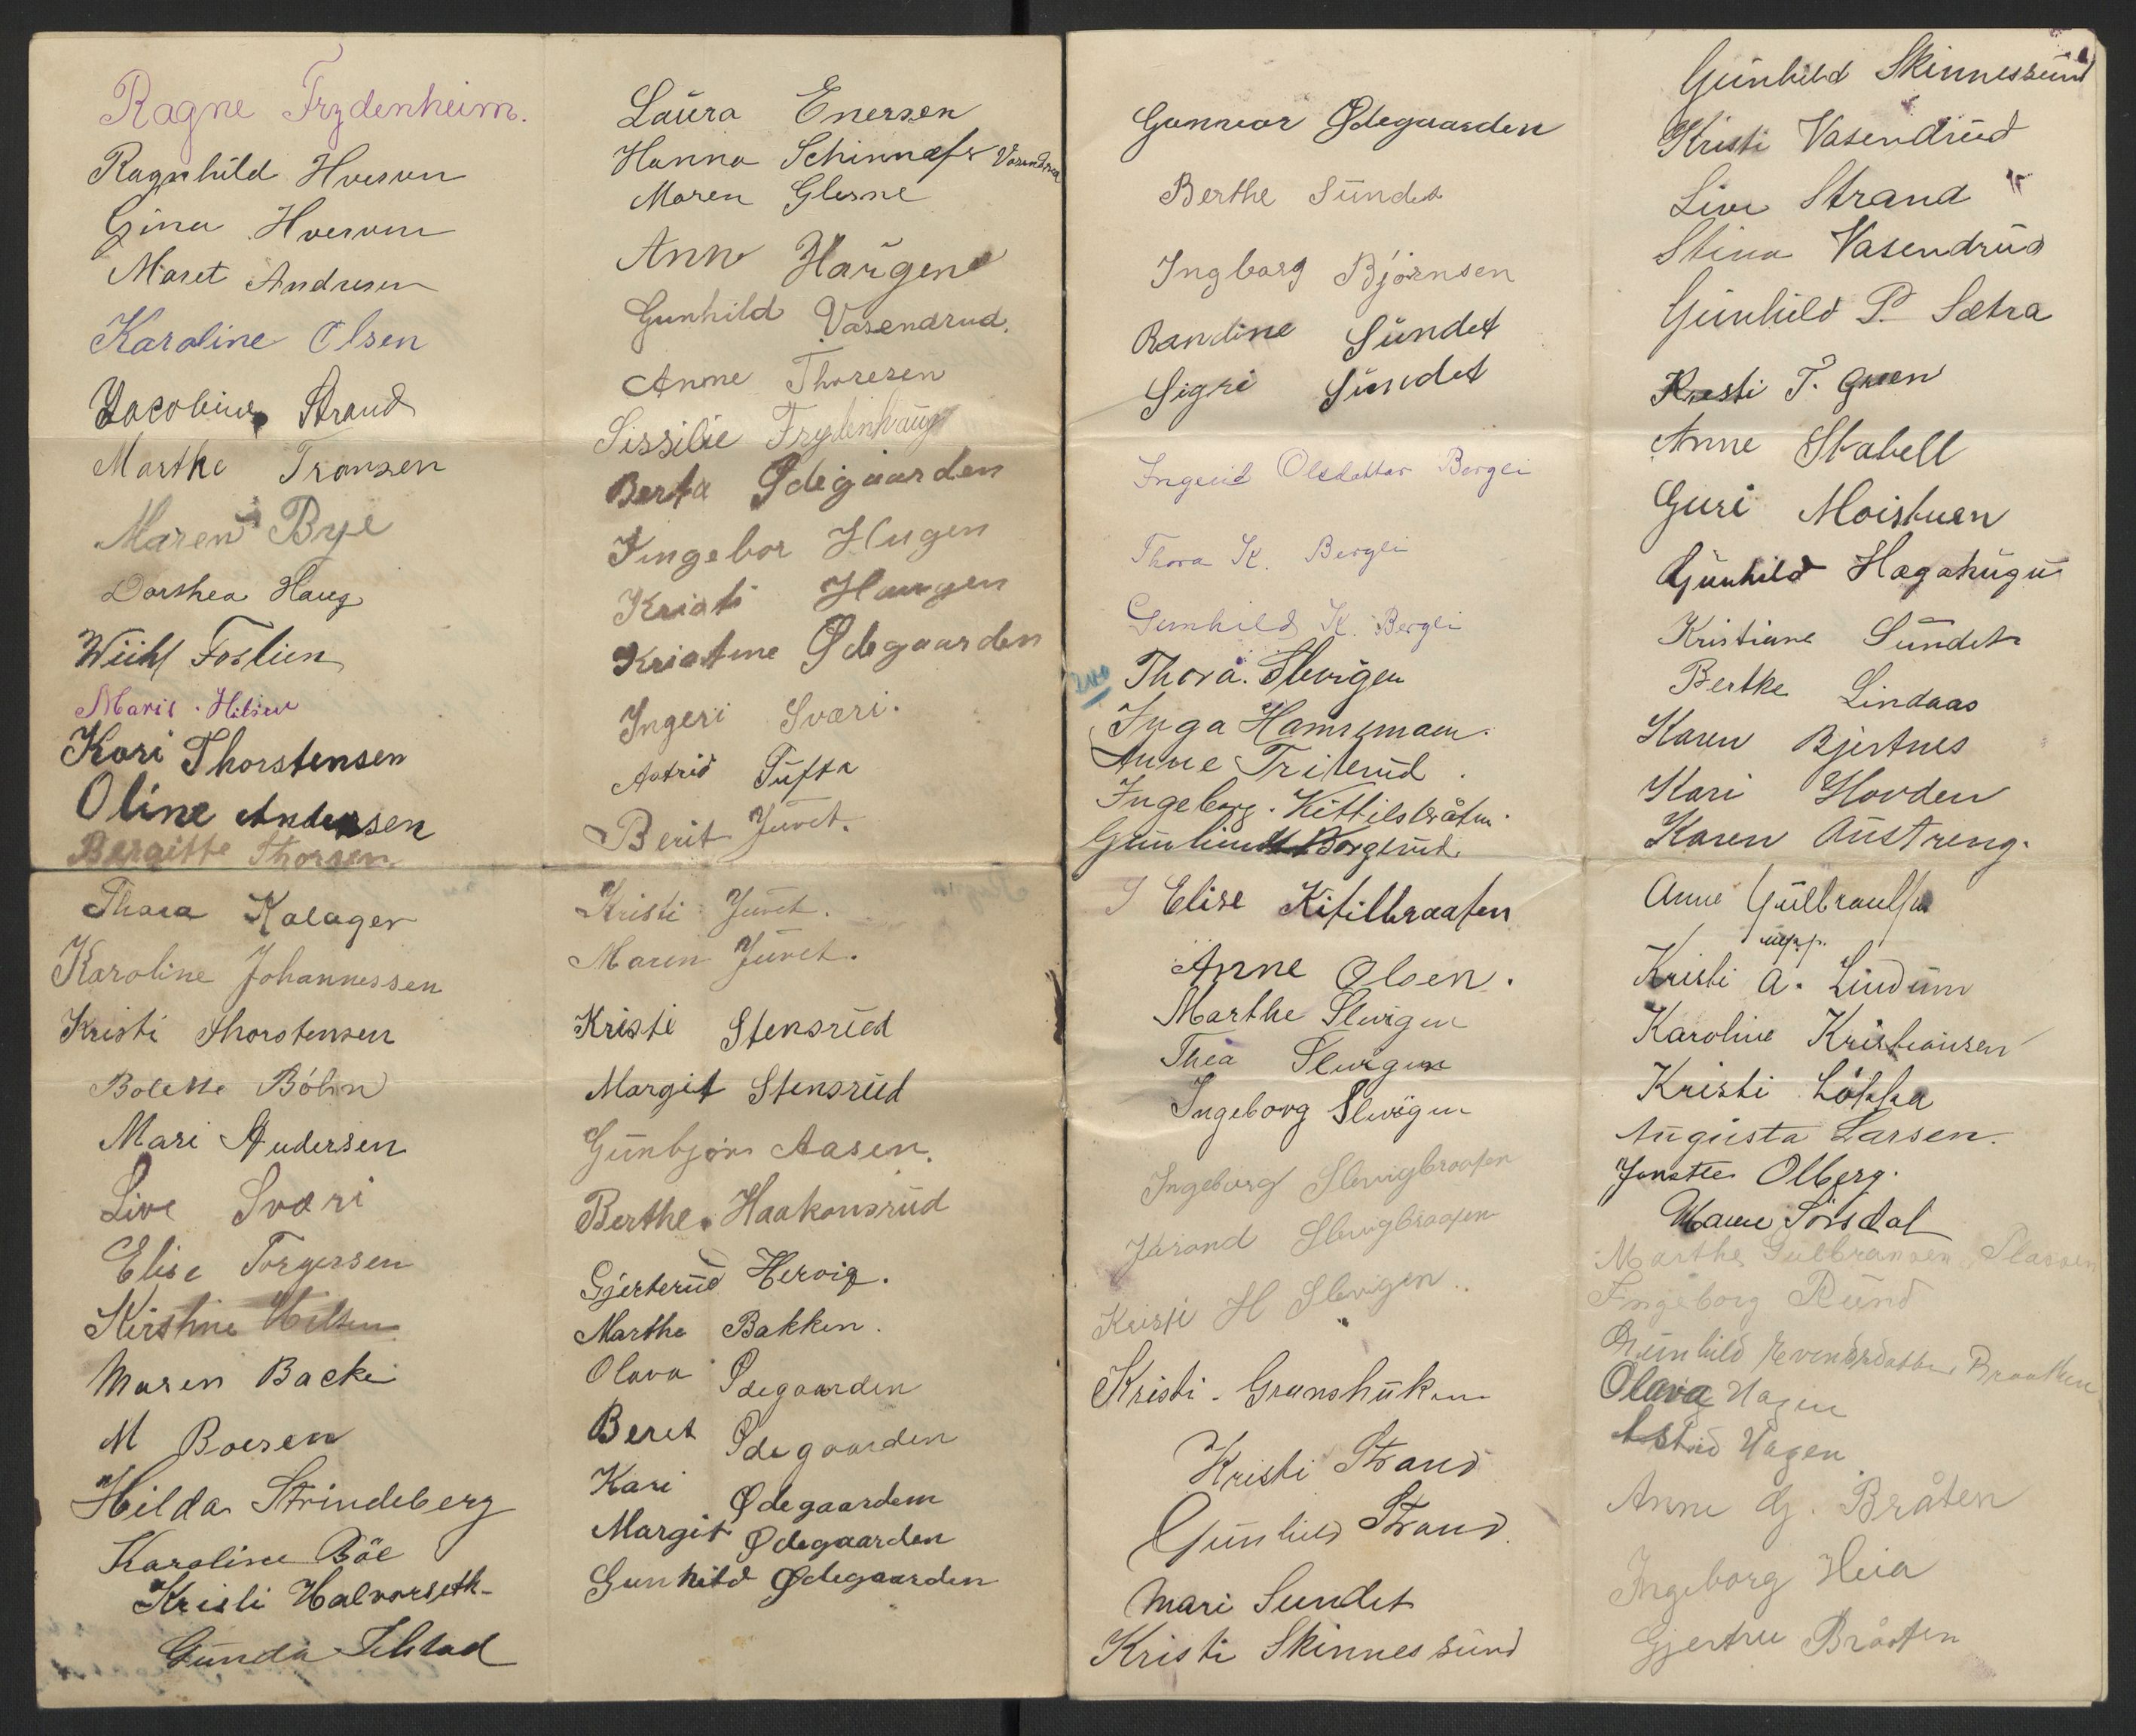 Ragne Frydenheim.
Ragnhild Hversven
Gina Hversven
Maret Andresen
Karoline Olsen
Jacobine Strand
Marthe Transen
Maren Bye
Dorthea Haug
Foslien
Marit Hilsen
Kari Thorstensen
Oline Andersen
Bergitte Thorsen
Thora Kalager
Karoline Johannessen
Kristi Thorstensen
Bolette Böhn
Mari Andersen
Live Svari
Elise Torgersen
Kirstine Hilsen
Maren Backe
M Boesen
Hilda Strindeberg
Karoline Böe
Kristi Halvorseth
Gunda Tilstad
Laura Enersen
Hanna Schinnes Vasendrud
Maren Glesne
Anne Haugen
Gunhild Vasendrud.
Anne Thoresen
Sissilie Frydenhaug
Berta Ødegaarden
Ingebor Hugen
Kristi Haugen
Kristine Ødegaarden
Ingeri Svari.
Astrid Tufta
Berit Juvet.
Kristi Juvet.
Maren Juvet.
Kristi Stensrud
Margit Stensrud
Gunbjör Aasen.
Berthe Haakonsrud
Gjerterud Hervig.
Marthe Bakken.
Olava Ødegaarden
Beret Ødegaarden
Kari Ødegaardem
Margit Ødegaarden
Gunhild Ødegaarden
Gunneor Ødegaarden
Berthe Sundet
Ingborg Björnsen
Randine Sundet
Sigri Sundet
Ingerid Olsdatter Bergli
Thora K. Bergli
Gunhild K. Bergli
Thora Slevigen
Inga Hamremoen.
Anne Triterud.
Ingeborg Kittilsbråten.
Gunhild Borgerud
Elise Kitilbraaten
Anne Olsen.
Marthe Slevigen
Thea Slevigen
Ingeborg Slevigen
Ingeborg Slevigbraaten
Jørand Slevigbraaten
Kristi H Slevigen
Kristi Granshuken
Kristi Strand
Gunhild Strand.
Mari Sundet
Kristi Skinnessund
Gunhild Skinnessund
Kristi Vasendrud
Live Strand
Stina Vasendrud
Gunhild P. Sætra
Kristi T. Green
Anne Stabell
Guri Moistuen
Gunhild Hagahugu
Kristiane Sundet
Berthe Lindaas
Karen Bjertnes
Kari Hovden
Karen Austreng.
Anne Gulbrandsen
Kristi A. Lindum
Karoline Kristiansen
Kristi Lökka
Augusta Larsen.
Jonette Olberg.
Maren Sörsdal
Marthe Gulbransen Plassen
Ingeborg Rund
Gunhild Evensdatter Braaten
Olava Hagen
Astrid Hagen
Anne G. Bråten
Ingeborg Heia
Gjertru Bråaten